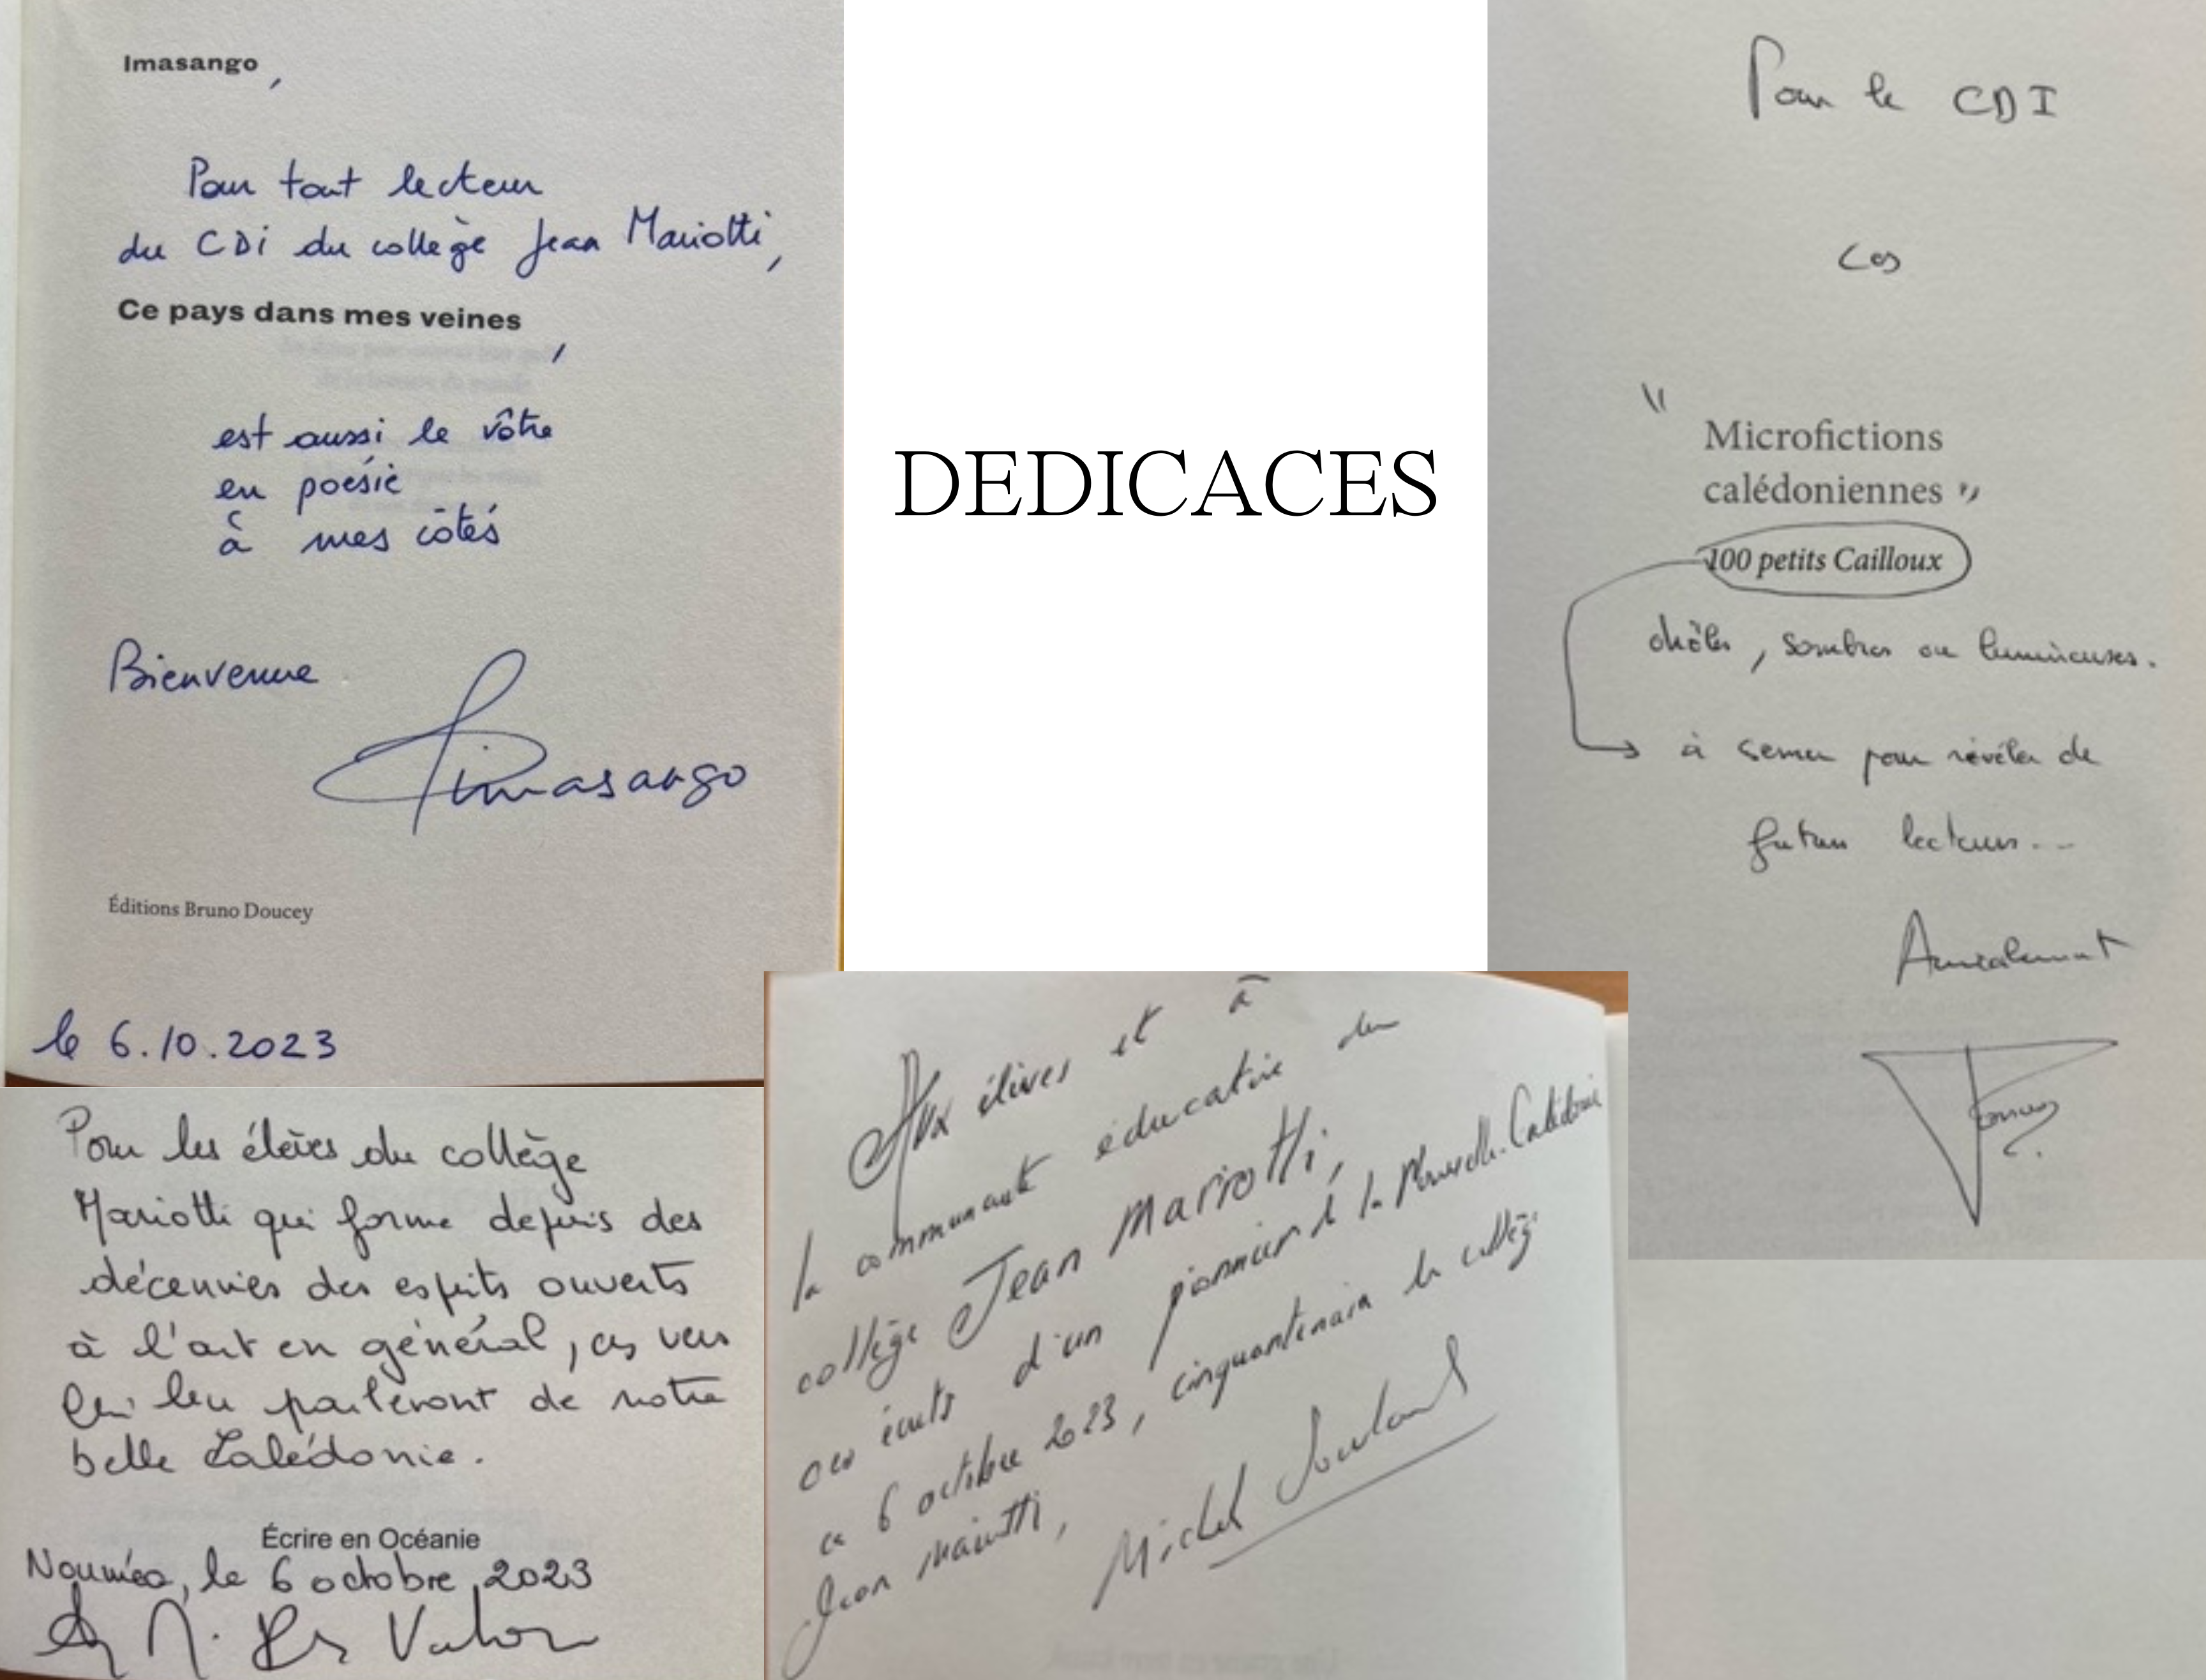 Imasango,
Pour tout lecteur
du CDi du collège Jean Mariotti,
Ce pays dans mes veines,
est aussi le vôtre
en poésie
à mes côtés
Bienvenue
imasango
Éditions Bruno Doucey
le 6.10.2023
DEDICACES
Pour le CDI
Ces
"Microfictions
calédoniennes"
100 petits Cailloux
drôles, sombres ou lumineuses.
à semer pour révéler de
futurs lecteurs...
Amicalement
Pour les élèves du collège
Mariotti qui forme depuis des
décennies des esprits ouverts
à l'art en général, ces vers
qui leur parleront de notre
belle Calédonie.
Écrire en Océanie
Nouméa, le 6 octobre 2023
Aux élèves et à
la communauté éducative du
collège Jean Mariotti,
ces écrits d'un pionnier de la Nouvelle-Calédonie
ce 6 octobre 2023, cinquantenaire du collège
Jean Mariotti,
Michel